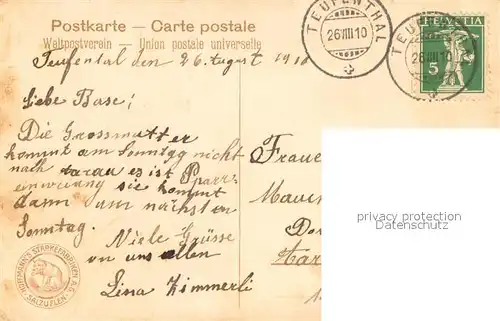 Postkarte – Carte postale
Weltpostverein – Union postale universelle
TEUFENTHAL
26 VIII 10
TEUFENTHAL
26 VIII 10
HELVETIA
5
Teufental den 26. August 1910
Liebe Base;
Die Grossmutter
kommt am Sonntag nicht
nach es ist Pfarr-
einweiung sie kommt
dann am nächsten
Sonntag.
Viele Grüsse
von uns allen
Lina Zimmerli
Frau
HOFFMANN'S STÄRKEFABRIKEN A.G.
SALZUFLEN
privacy protection
Datenschutz